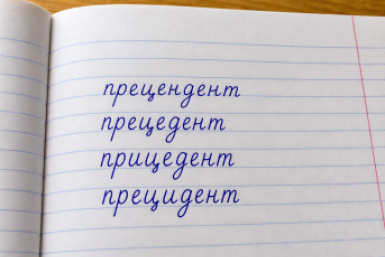 прецендент
прецедент
прицедент
прецидент